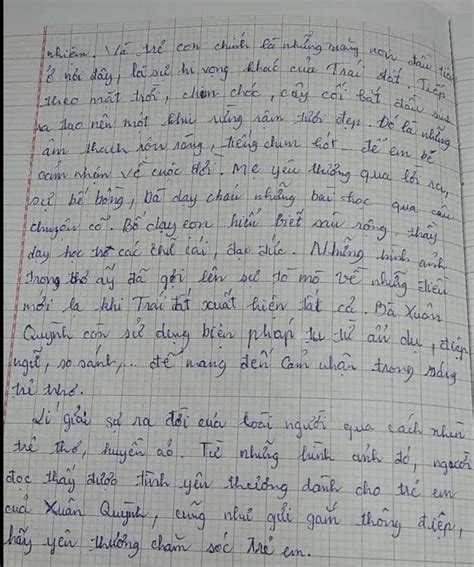 nhiên. Và trẻ con chính là những mang non đầu tiên
ở nơi đây, là sự hi vọng khác của Trái đất. Tiếp
theo mặt trời, chim chóc, cây cối bắt đầu sinh
ra tạo nên một khu rừng râm tươi đẹp. Đó là những
âm thanh rộn ràng, tiếng chim hót... để em bé
cảm nhận về cuộc đời. Mẹ yêu thương qua lời ru,
sự bế bồng, bà dạy cháu những bài học qua câu
chuyện cổ. Bố dạy con hiểu biết sâu rộng, thầy
dạy học các chữ cái, đạo đức. Những hình ảnh
trong thơ ấy đã gợi lên sự tò mò về những điều
mới lạ khi Trái đất xuất hiện tất cả. Bà Xuân
Quỳnh còn sử dụng biện pháp tu từ ẩn dụ, điệp
ngữ, so sánh,... để mang đến cảm nhận trong sáng
trẻ thơ.
Lí giải sự ra đời của loài người qua cách nhìn
trẻ thơ, huyền ảo. Từ những hình ảnh đó, người
đọc thấy được tình yêu thương dành cho trẻ em
của Xuân Quỳnh, cũng như gửi gắm thông điệp,
hãy yêu thương chăm sóc trẻ em.